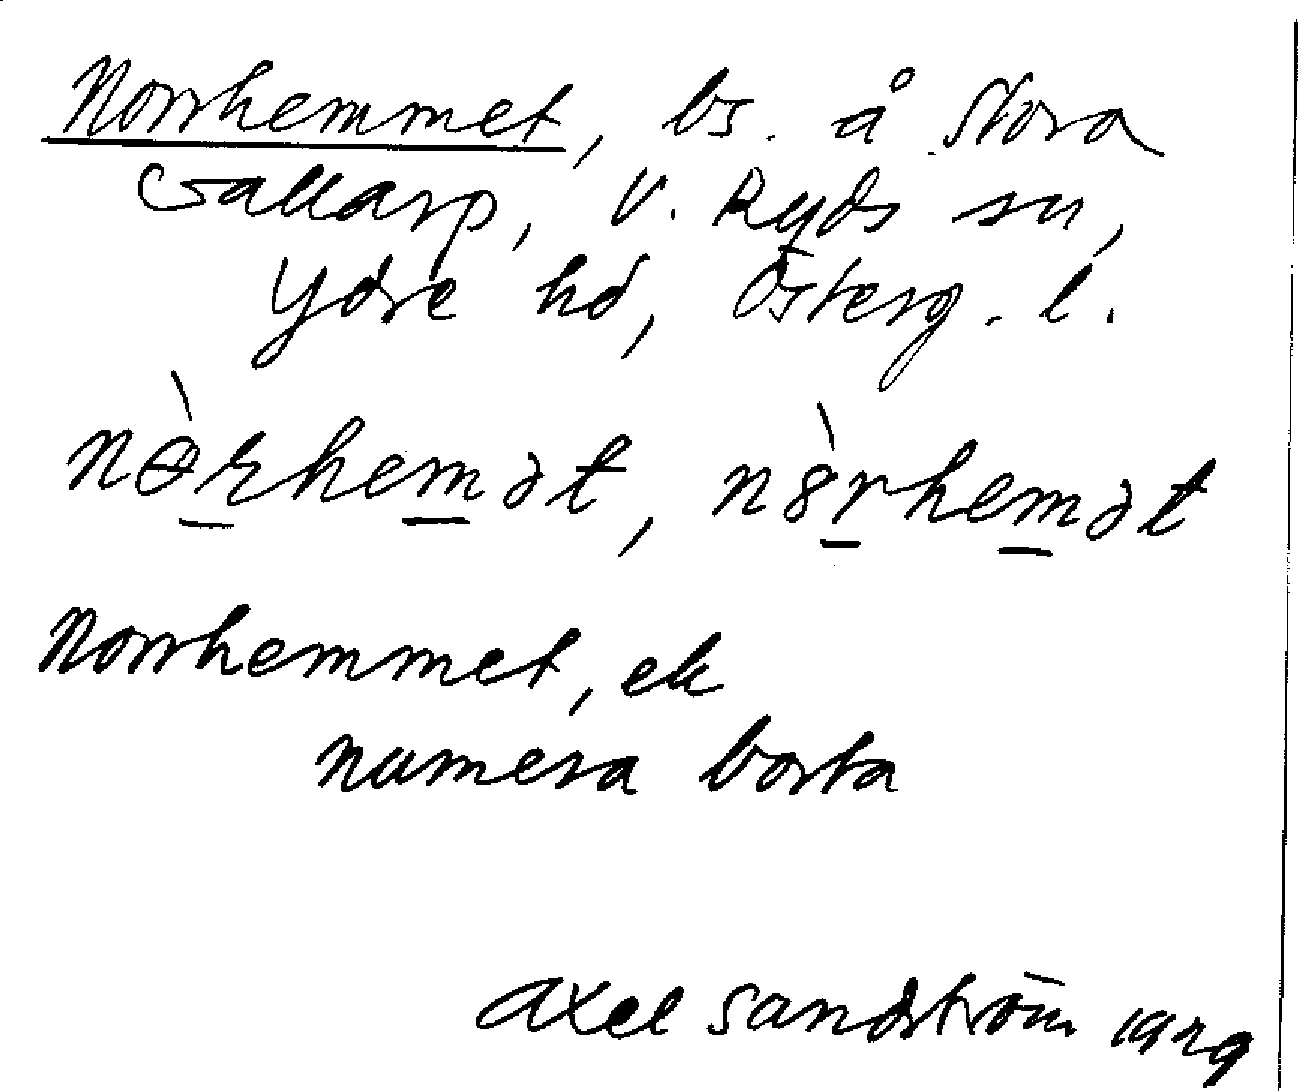 Norrhemmet, bs. å Stora
Gallarp, V. Ryds sn,
Ydre hd, Österg. l.
nɵ̀r̲hem̲ət, n8̀r̲hem̲ət
Norrhemmet, ek
numera borta
Axel Sandström 1929